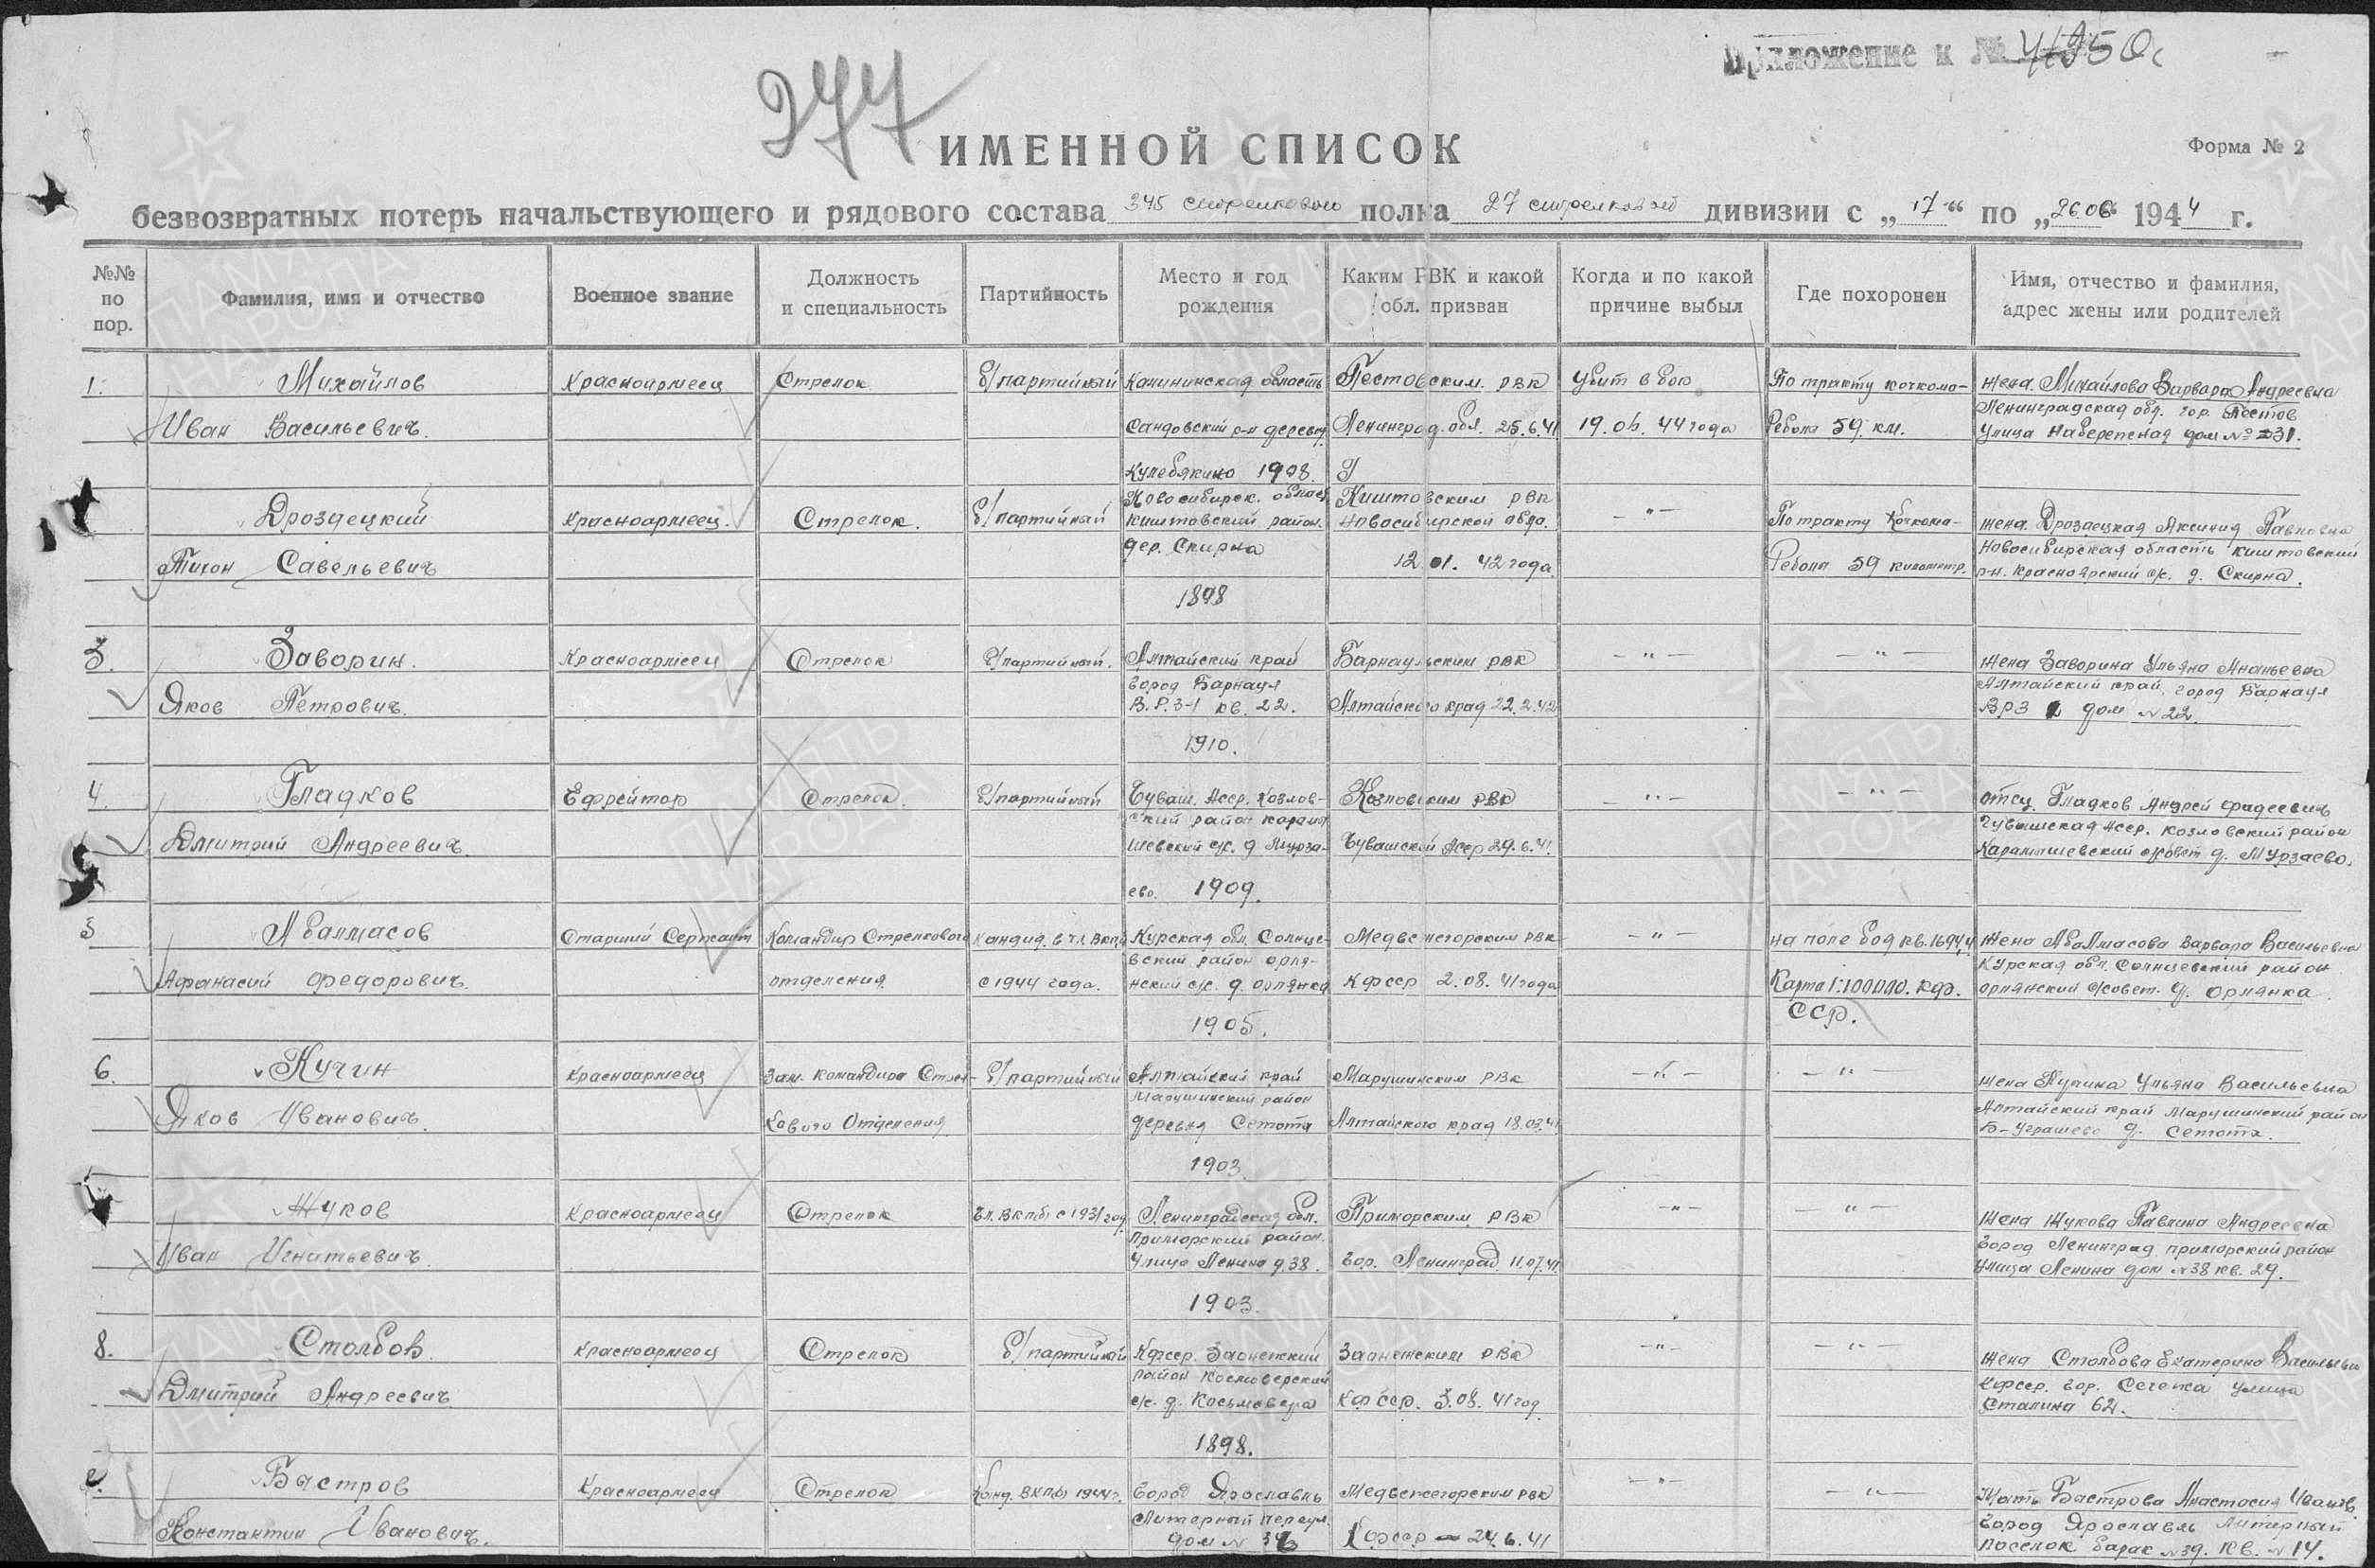 Приложение к № 4950с
277
ИМЕННОЙ СПИСОК
Форма № 2
безвозвратных потерь начальствующего и рядового состава 345 стрелкового полка 27 стрелковой дивизии с „17“ по „26.06“ 1944 г.
№№ по пор. Фамилия, имя и отчество Военное звание Должность и специальность Партийность Место и год рождения Каким РВК и какой обл. призван Когда и по какой причине выбыл Где похоронен Имя, отчество и фамилия, адрес жены или родителей
1. Михайлов Красноармеец Стрелок б/партийный Калининская область Пестовским РВК Убит в бою По тракту кочкома- жена. Михайлова Варвара Андреевна
Ленинградская обл. гор. Пестов
Иван Васильевич. Сандовский р-н деревня Ленинград. обл. 25.6.41 19.06.44 года Ребола 59 км. улица Набережная дом № 31.
Кулебякино 1908 г
Новосибирск. област Киштовским РВК
Дроздецкий Красноармеец. Стрелок. б/партийный Киштовский район. Новосибирской обла. -"- По тракту Кочкома- жена. Дроздецкая Аксиния Павловна
дер. Скирла Новосибирская область Киштовский
Тихон Савельевич 12.01.42 года. Ребола 59 километр. р-н. Красноярский с/с. д. Скирла.
1898
3. Заворин. Красноармеец Стрелок б/партийный. Алтайский край Барнаульским РВК -"- -"- Жена Заворина Ульяна Ананьевна
город Барнаул Алтайский край, город Барнаул
Яков Петрович. В.Р.З-1 кв. 22. Алтайского края 22.2.42 ВРЗ дом № 22.
1910.
4. Гладков Ефрейтор Стрелок. б/партийный Чуваш. Асср. Козлов- Козловским РВК -"- -"- отец. Гладков Андрей Фадеевич
ский район Карамы Чувашская Асср. Козловский район
Дмитрий Андреевич. шевский с/с. д Мурза- Чувашской Асср 29.6.41. Карамышевский с/совет д. Мурзаево.
ево. 1909.
5 Абалмасов Старший Сержант Командир Стрелкового Кандид. в чл. Вкп/б Курская обл. Солнце- Медвежегорским РВК -"- на поле боя кв. 16944 Жена Абалмасова Варвара Васильевна
вский район орля- Курская обл. Солнцевский район
Афанасий Федорович. отделения с 1944 года. нский с/с. д. орлянка Кфсср 2.08.41 года Карта 1:100000. Кф. орлянский с/совет. д. Орлянка.
1905. ССР.
6. Кучин Красноармеец Зам. командира Стрел- б/партийный Алтайский край Марушинским РВК -"- -"- жена Кучина Ульяна Васильевна
Марушинский район Алтайский край Марушинский район
Яков Иванович. кового Отделения деревня Сетота Алтайского края 18.09.41 Б-Уграшево д. Сетота.
1903.
Жуков Красноармеец Стрелок Чл. Вкп/б/ с 1931 год Ленинградская обл. Приморским РВК -"- -"- Жена Жукова Павлина Андреевна
Приморский район. город Ленинград приморский район
Иван Игнатьевич. улица Ленина д. 38. гор. Ленинград 11.07.41 улица Ленина дом № 38 кв. 29.
1903.
8. Столбов Красноармеец Стрелок б/партийный Кфсср. Заонежский Заонежским РВК -"- -"- Жена Столбова Екатерина Васильевн
район Космозерский Кфсср. гор. Сегежа улица
Дмитрий Андреевич с/с. д. Косьмозеро Кфсср. 3.08.41 год Сталина 62.
1898.
Бастров Красноармеец Стрелок Канд. Вкп/б/ 1944 г. город Ярославль Медвежегорским РВК -"- -"- Мать Бастрова Анастасия Иванов.
Литерный переул. город Ярославль Литерный
Константин Иванович. дом № Кфсср 24.6.41 поселок барак № 39. кв. № 14.